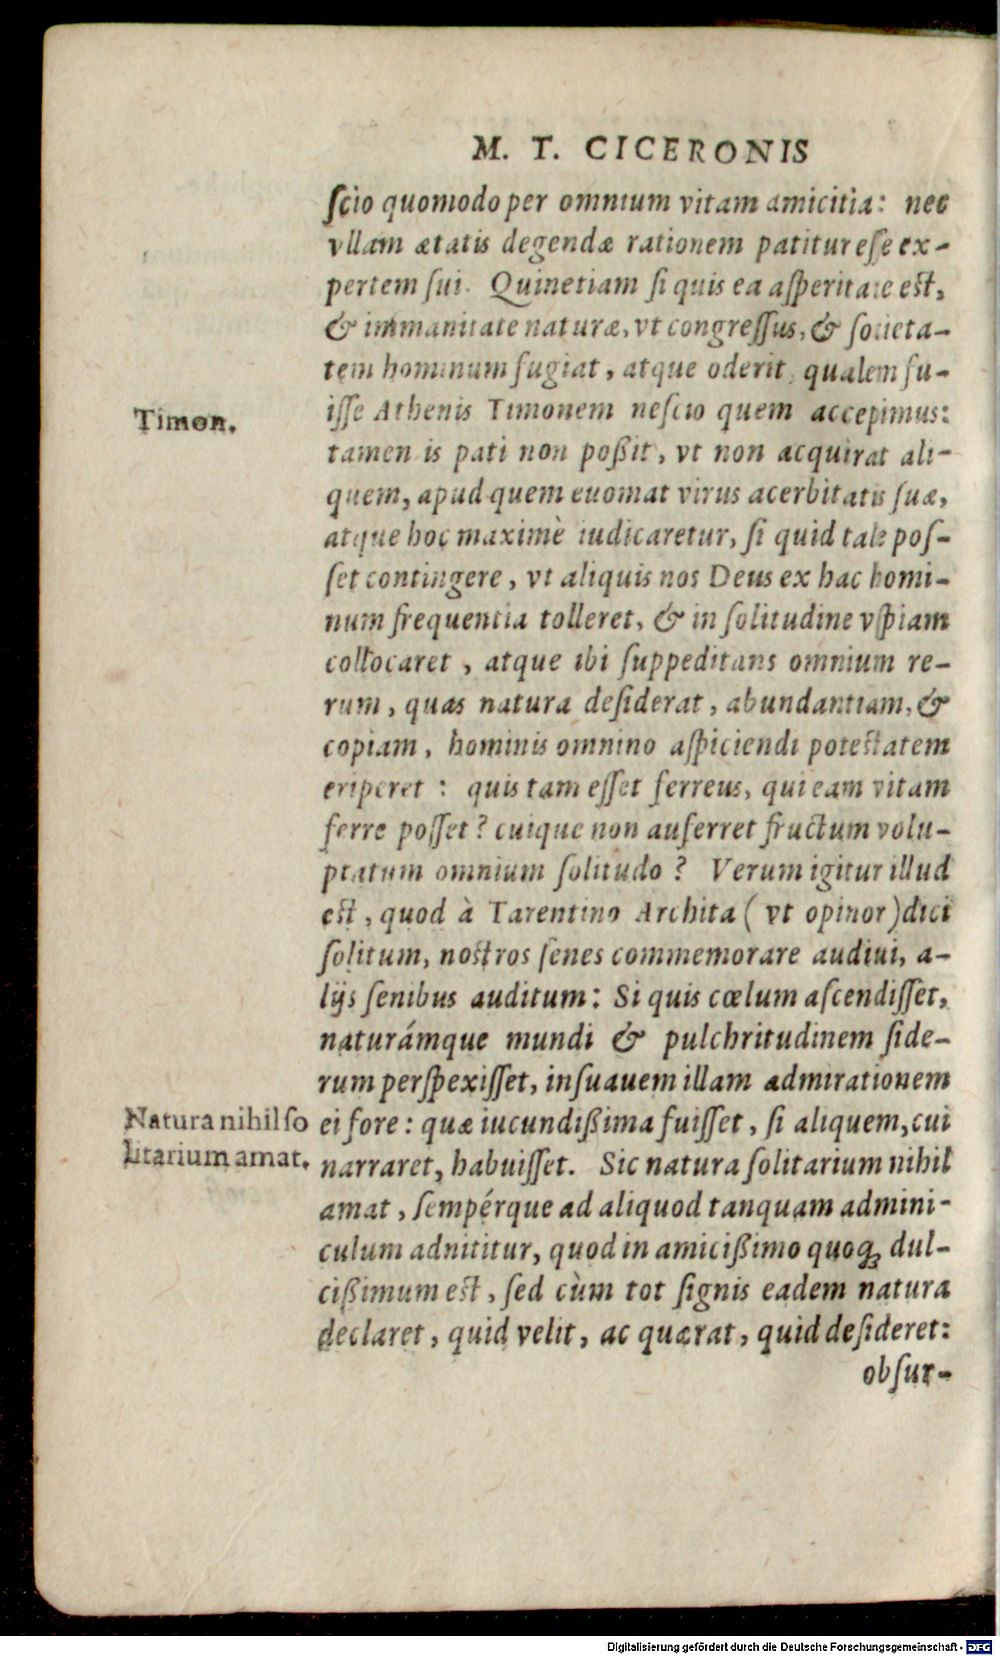 M. T. CICERONIS
ſcio quomodo per omnium vitam amicitia: nec
vllam ætatis degendæ rationem patitur eſſe ex-
pertem ſui. Quinetiam ſi quis ea aſperitate eſt,
& immanitate naturæ, vt congreſſus, & ſocieta-
tem hominum fugiat, atque oderit, qualem fu-
iſſe Athenis Timonem neſcio quem accepimus:
Timon.
tamen is pati non poßit, vt non acquirat ali-
quem, apud quem euomat virus acerbitatis ſuæ,
atque hoc maximè iudicaretur, ſi quid tale poſ-
ſet contingere, vt aliquis nos Deus ex hac homi-
num frequentia tolleret, & in ſolitudine vſpiam
collocaret, atque ibi ſuppeditans omnium re-
rum, quas natura deſiderat, abundantiam, &
copiam, hominis omnino aſpiciendi poteſtatem
eriperet: quis tam eſſet ferreus, qui eam vitam
ferre poſſet? cuique non auferret fructum volu-
ptatum omnium ſolitudo? Verum igitur illud
eſt, quod à Tarentino Archita (vt opinor) dici
ſolitum, noſtros ſenes commemorare audiui, a-
lijs ſenibus auditum: Si quis cœlum aſcendiſſet,
naturámque mundi & pulchritudinem ſide-
rum perſpexiſſet, inſuauem illam admirationem
ei fore: quæ iucundißima fuiſſet, ſi aliquem, cui
Natura nihil ſo
litarium amat.
narraret, habuiſſet. Sic natura ſolitarium nihil
amat, ſempérque ad aliquod tanquam admini-
culum adnititur, quod in amicißimo quoq; dul-
cißimum eſt, ſed cùm tot ſignis eadem natura
declaret, quid velit, ac quærat, quid deſideret:
obſur-
Digitalisierung gefördert durch die Deutsche Forschungsgemeinschaft - DFG